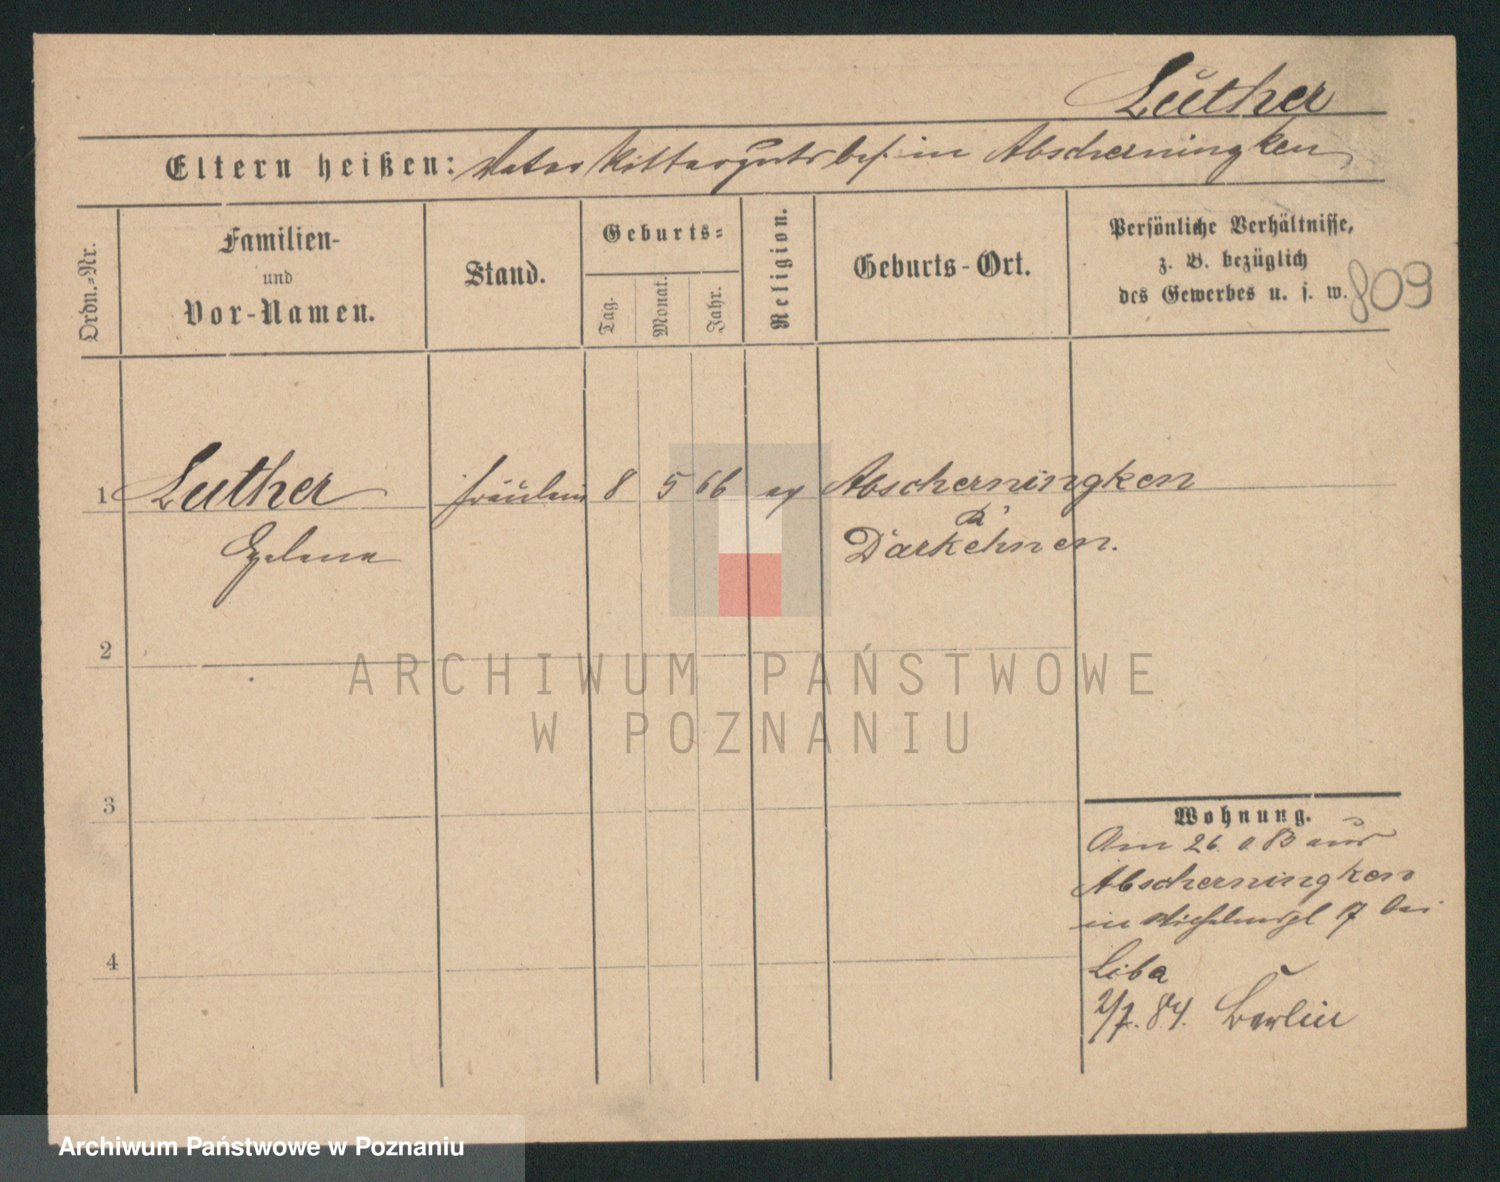 Luther
Eltern heißen: Vater Rittergutsbes. in Abscherningken
Ordn.-Nr.
Familien-
und
Vor-Namen.
Stand.
Geburts-
Tag.
Monat.
Jahr.
Religion.
Geburts-Ort.
Persönliche Verhältnisse,
z. B. bezüglich
des Gewerbes u. s. w.
809
1 Luther Fräulein 8 5 66 ev Abscherningken
Helene
Kr
Darkehmen.
2
3
4
Wohnung.
Am 26. 83 aus
Abscherningken
in 17 bei
Liba
2/7. 84. Berlin
ARCHIWUM PAŃSTWOWE
W POZNANIU
Archiwum Państwowe w Poznaniu